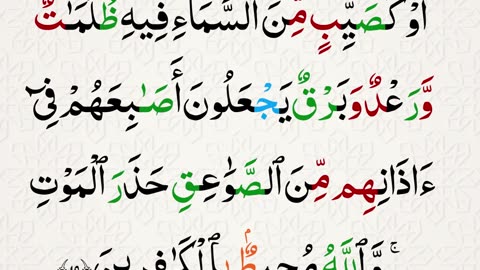 أَوْ كَصَيِّبٍ مِّنَ السَّمَاءِ فِيهِ ظُلُمَٰتٌ
وَّرَعْدٌ وَّبَرْقٌ يَجْعَلُونَ أَصَٰبِعَهُمْ فِىٓ
ءَاذَانِهِم مِّنَ ٱلصَّوَٰعِقِ حَذَرَ ٱلْمَوْتِ
ۚ وَٱللَّهُ مُحِيطٌۢ بِٱلْكَٰفِرِينَ ﴿١٩﴾